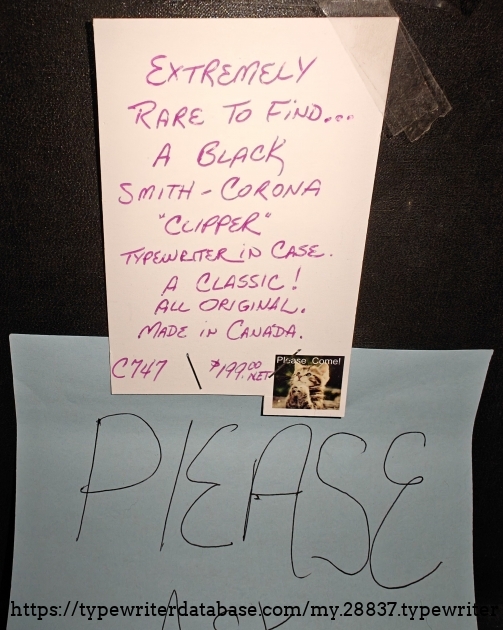 EXTREMELY
RARE TO FIND...
A BLACK
SMITH-CORONA
"CLIPPER"
TYPEWRITER IN CASE.
A CLASSIC!
ALL ORIGINAL.
MADE IN CANADA.
C747 \ $199.00 NET
Please Come!
PLEASE
https://typewriterdatabase.com/my.28837.typewriter